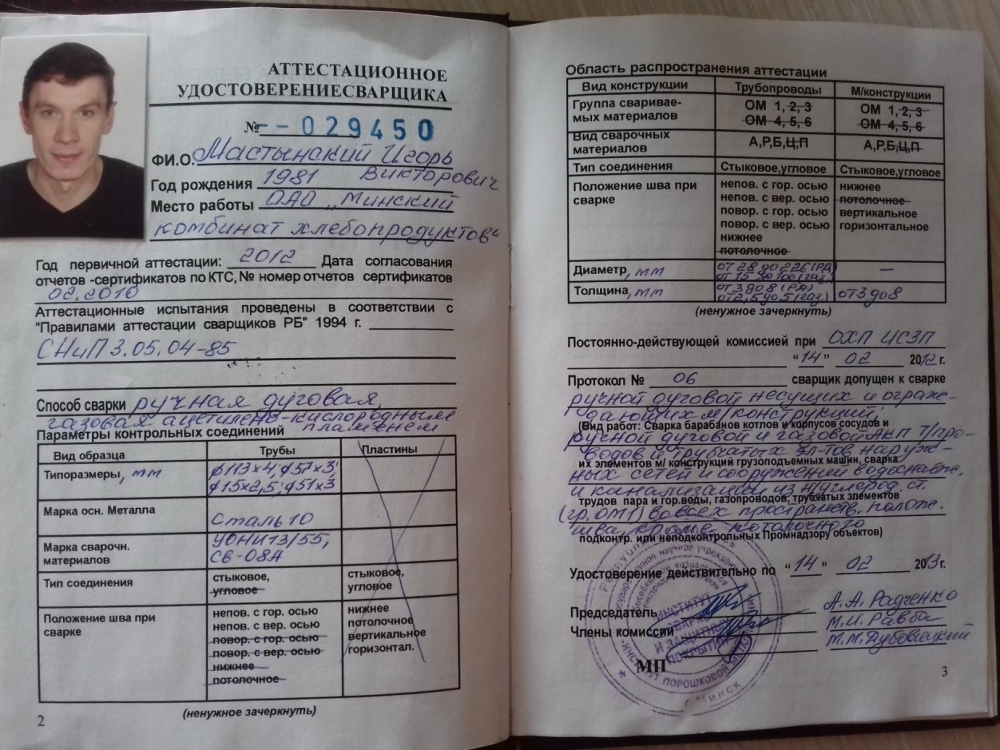 АТТЕСТАЦИОННОЕ
УДОСТОВЕРЕНИЕСВАРЩИКА
№--029450
Ф.И.О. Мастынский Игорь
Викторович
Год рождения 1981
Место работы ОАО „Минский
комбинат хлебопродуктов“
Год первичной аттестации: 2012 Дата согласования
отчетов -сертификатов по КТС, № номер отчетов сертификатов
02.2010
Аттестационные испытания проведены в соответствии с
"Правилами аттестации сварщиков РБ" 1994 г.
СНиП 3.05.04-85
Способ сварки ручная дуговая,
газовая ацетилено-кислородным
пламенем
Параметры контрольных соединений
Вид образца Трубы Пластины
Типоразмеры, мм ф113х4, ф57х3
ф15х2,5, ф51х3
Марка осн. Металла Сталь 10
Марка сварочн. материалов УОНИ 13/55,
СВ-08А
Тип соединения стыковое, угловое стыковое, угловое
Положение шва при сварке
непов. с гор. осью
непов. с вер. осью
повор. с гор. осью
повор. с вер. осью
нижнее
потолочное
нижнее
потолочное
вертикальное
горизонтал.
(ненужное зачеркнуть)
2
Область распространения аттестации
Вид конструкции Трубопроводы М/конструкции
Группа сваривае-
мых материалов
ОМ 1, 2, 3
ОМ 4, 5, 6
ОМ 1, 2, 3
ОМ 4, 5, 6
Вид сварочных
материалов
А,Р,Б,Ц,П А,Р,Б,Ц,П
Тип соединения Стыковое,угловое Стыковое,угловое
Положение шва при
сварке
непов. с гор. осью
непов. с вер. осью
повор. с гор. осью
повор. с вер. осью
нижнее
потолочное
нижнее
потолочное
вертикальное
горизонтальное
Диаметр, мм —
Толщина, мм от 3 до 8 (РД)
от 2,5 до 5 (газ.)
от 3 до 8
(ненужное зачеркнуть)
Постоянно-действующей комиссией при ОХП ИСЗП
"14" 02 2012г.
Протокол № 06 сварщик допущен к сварке
ручной дуговой несущих и ограж-
дающих м/конструкций;
(Вид работ: Сварка барабанов котлов и корпусов сосудов и
ручной дуговой и газовой
их элементов м/ конструкций грузоподъемных машин, сварка
ных сетей и сооружений водоснабж.
и канализации из углерод. ст.
трудов пара и гор.воды, газопроводов, трубчатых элементов
(гр. ОМ1) во всех пространств. полож.
шва, кроме потолочного
подконтр. или неподконтрольных Промнадзору объектов)
Удостоверение действительно по "14" 02 2013г.
Председатель А.А. Радченко
Члены комиссий
МП
3
ИНСТИТУТ
СВАРКИ
И ЗАЩИТНЫХ
ПОКРЫТИЙ